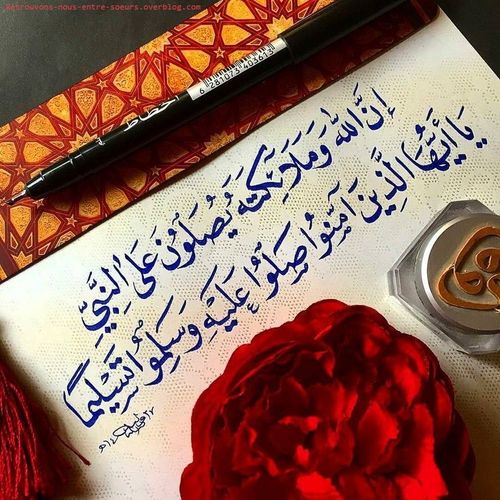 Retrouvons-nous-entre-soeurs.overblog.com
الخطاط
6 281073 403613
إِنَّ اللهَ وَمَلَائِكَتَهُ يُصَلُّونَ عَلَى النَّبِيِّ
يَا أَيُّهَا الَّذِينَ آمَنُوا صَلُّوا عَلَيْهِ وَسَلِّمُوا تَسْلِيمًا